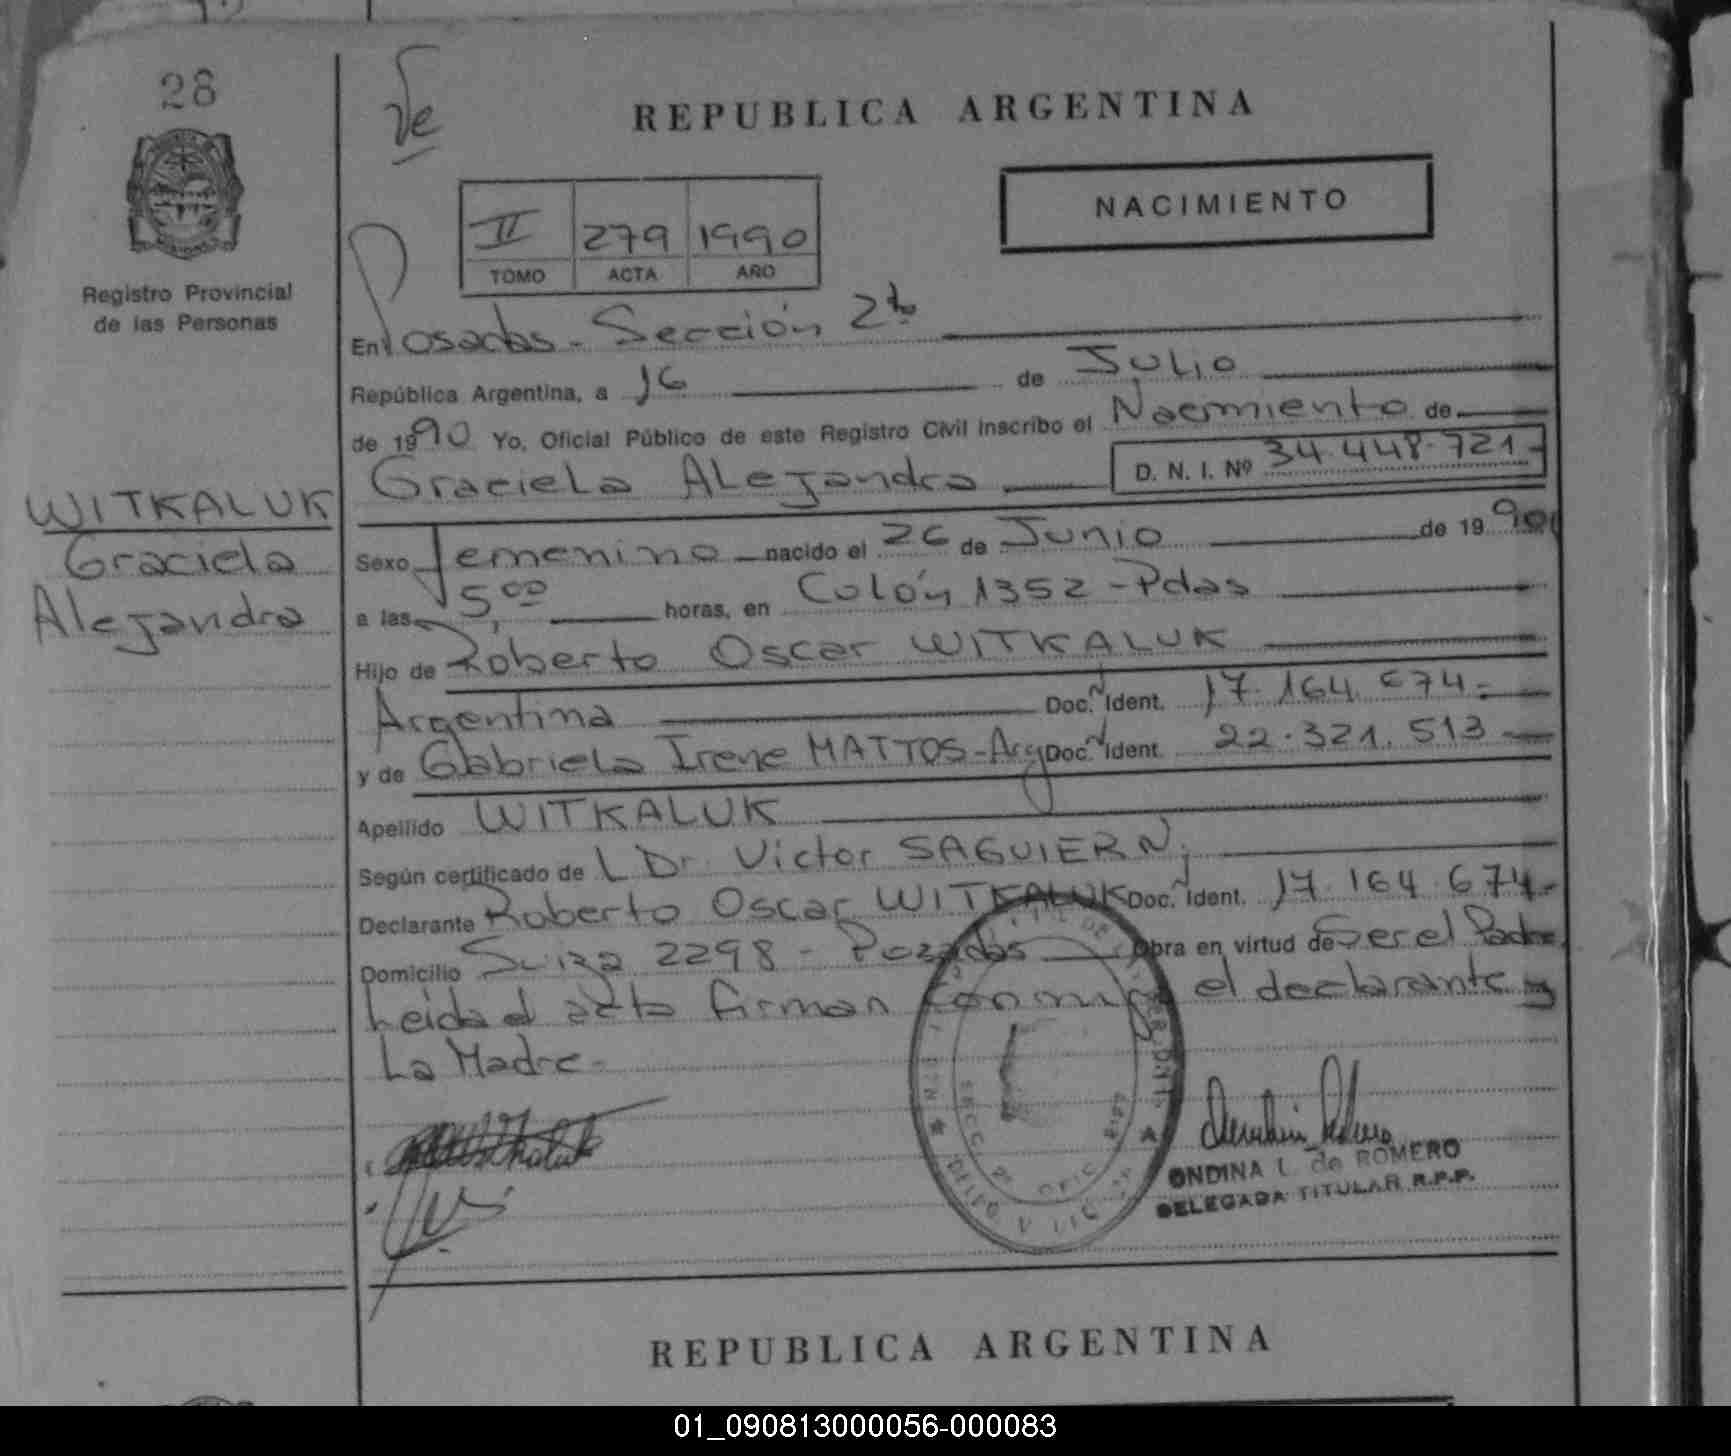 28
Registro Provincial
de las Personas
WITKALUK
Graciela
Alejandra
REPUBLICA ARGENTINA
NACIMIENTO
II 279 1990
TOMO ACTA AÑO
En Posadas - Sección 2da
República Argentina, a 16 de Julio
de 1990 Yo, Oficial Público de este Registro Civil inscribo el Nacimiento de
Graciela Alejandra D. N. I. Nº 34.448.721-
Sexo femenino nacido el 26 de Junio de 1990
a las 5,00 horas, en Colón 1352 - Pdas
Hijo de Roberto Oscar WITKALUK
Argentina Doc. Ident. 17.164.674.-
y de Gabriela Irene MATTOS - Arg Doc. Ident. 22.321.513-
Apellido WITKALUK
Según certificado de L Dr. Victor SAGUIER N,
Declarante Roberto Oscar WITKALUK Doc. Ident. 17.164.674.-
Domicilio Suiza 2298 - Pozadas Obra en virtud de Ser el Padre
Leida el acta firman conmigo el declarante y
La Madre-
ONDINA I. de ROMERO
DELEGADA TITULAR R.P.P.
REPUBLICA ARGENTINA
01_090813000056-000083